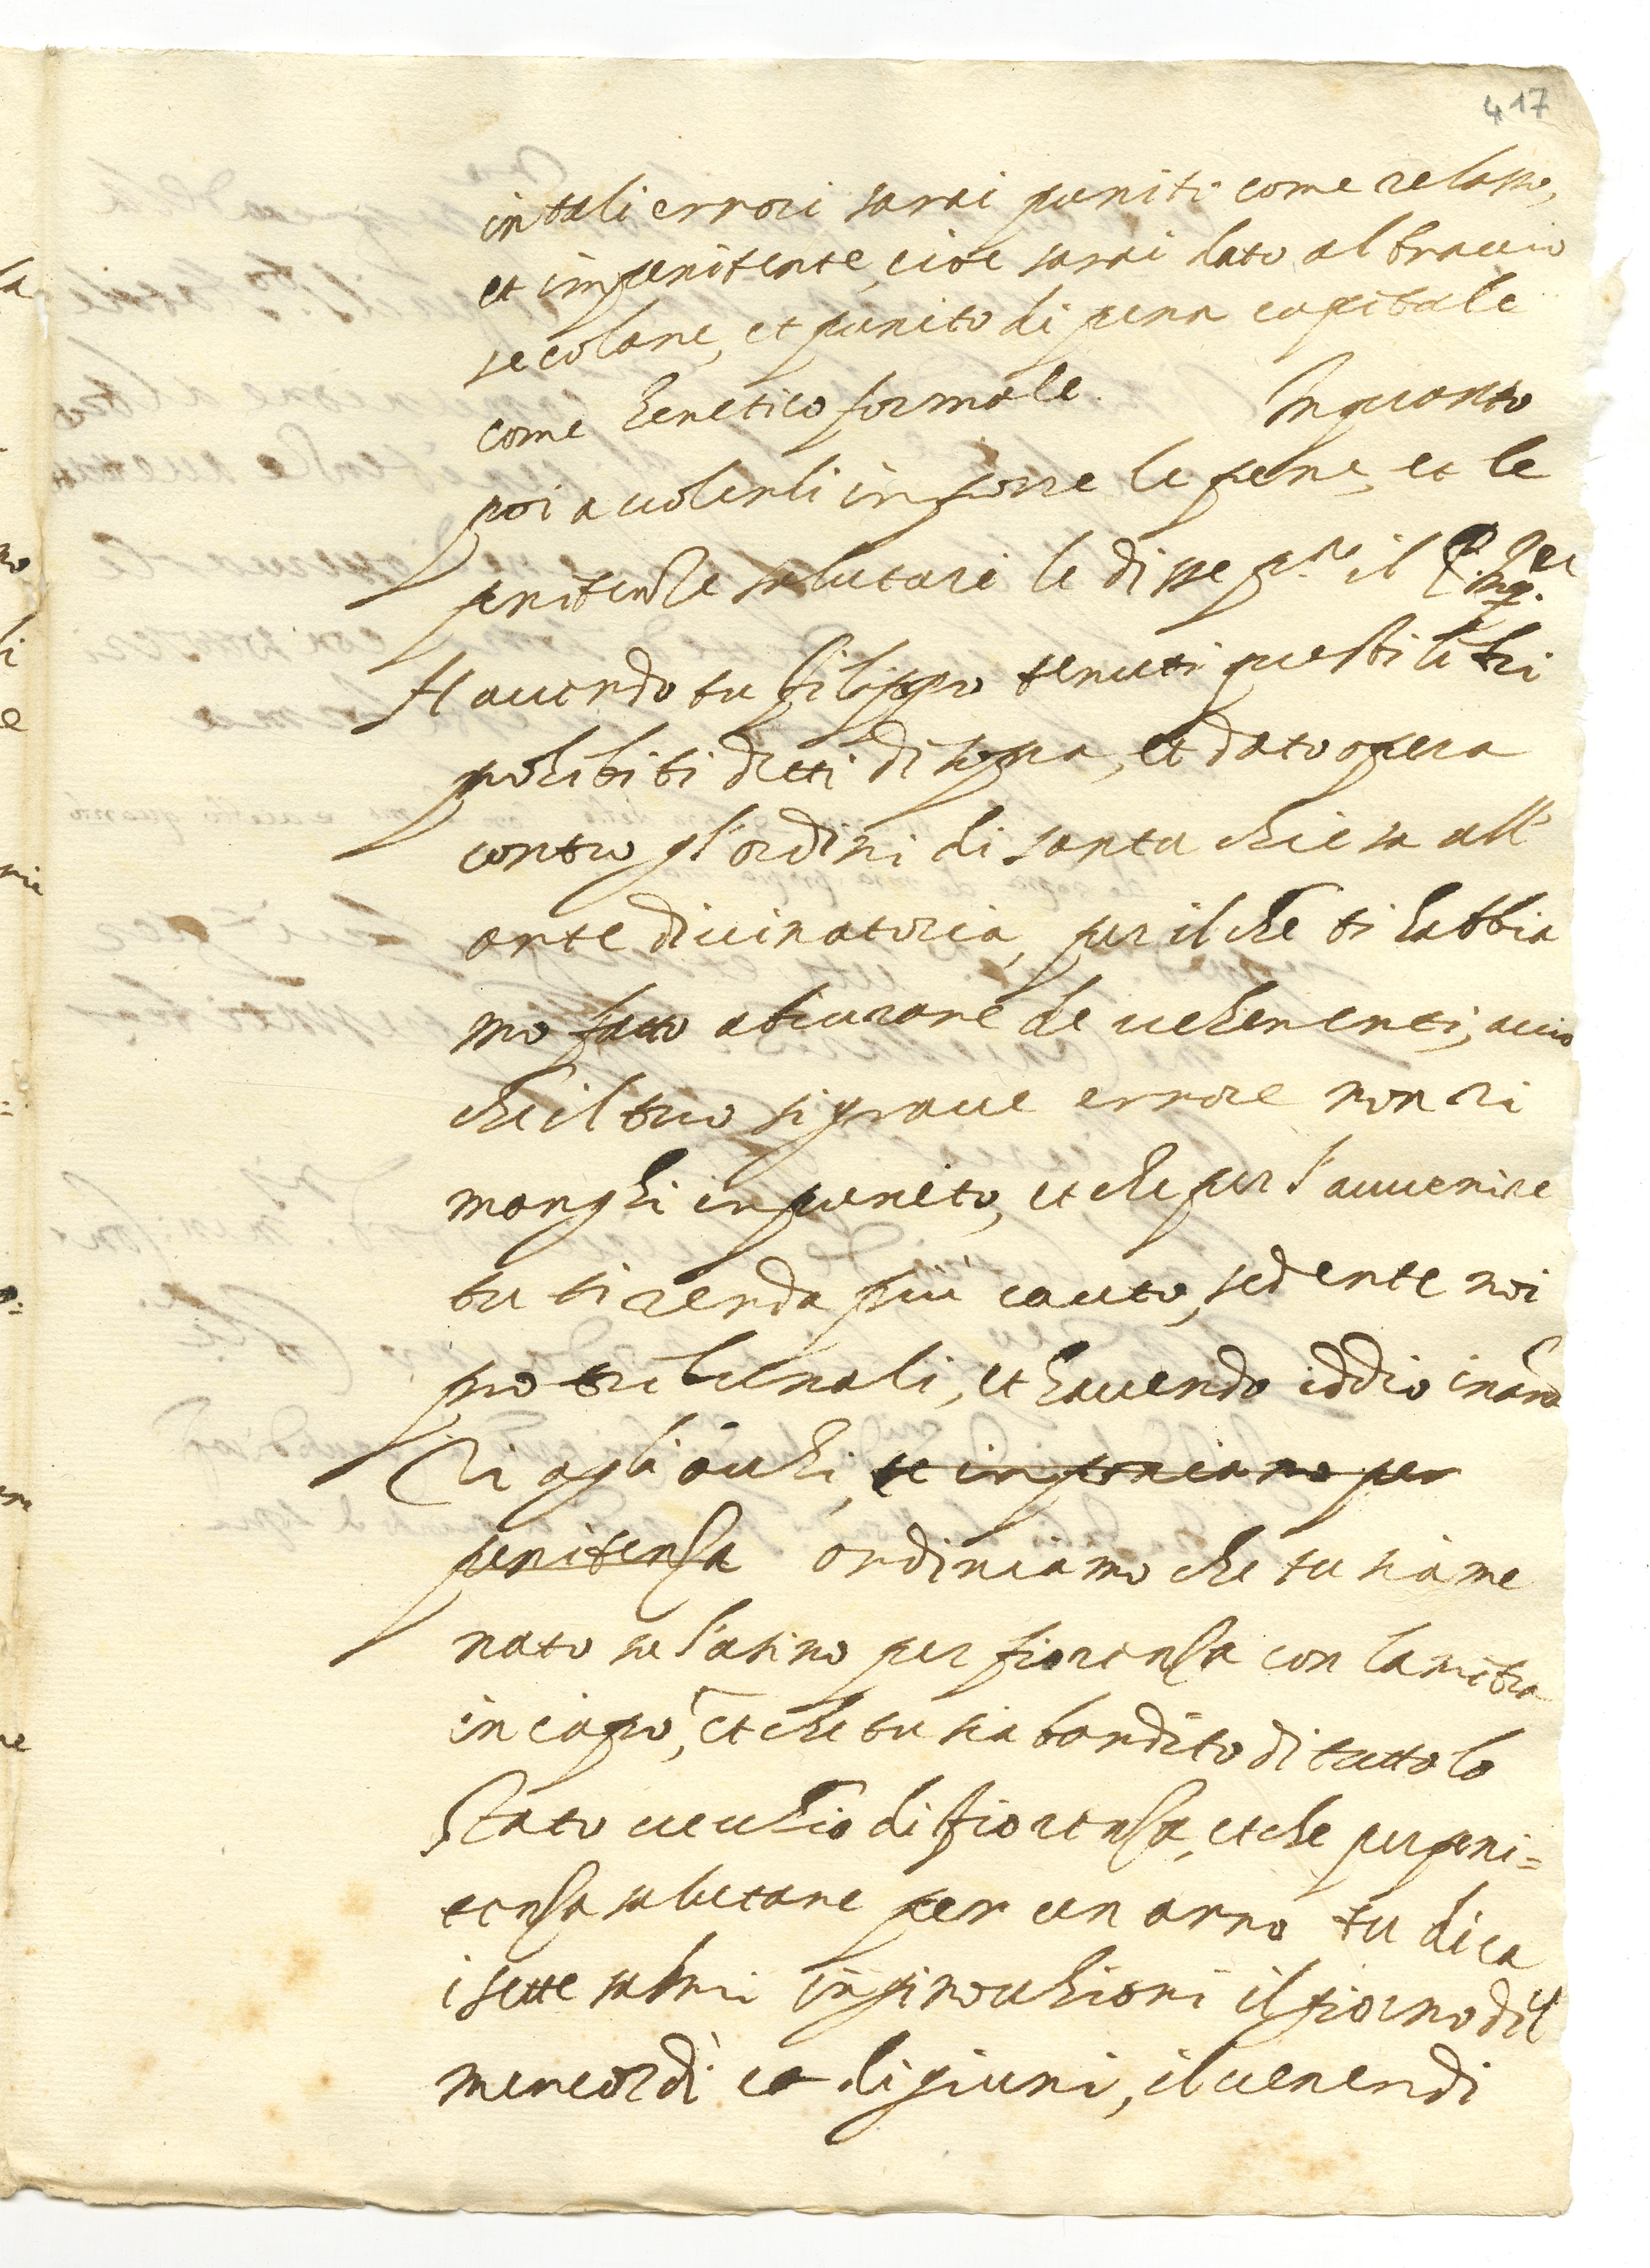 417
in tali errori sarai punito come relasso,
et impenitente, cioè sarai dato al braccio
secolare, et punito di pena capitale
come heretico formale. Inquanto
poi a volerli imporre le pene, et le
penitenze salutari le disse il P. Inq.
Havendo tu filippo tenuti questi libri
prohibiti detti di sopra, et dato opera
contro gl'ordini di santa chiesa all'
arte divinatoria, per il che ti habbia
mo fatto abiurare de vehementi, accio
che il tuo si grave errore non ri
manghi impunito, et che per l'avvenire
tu ti renda più cauto, sedente noi
pro tribunali, et havendo iddio inan
zi agli ochi, te imponiamo per
penitenza ordiniamo che tu sia me
nato su l'asino per fiorenza con la mitra
in capo, et che tu sia bandito di tutto lo
stato vechio di fiorenza, et che per peni=
tenza salutare per un anno tu dica
i sette salmi in ginochioni il giorno del
mercordì et digiuni, il venerdi